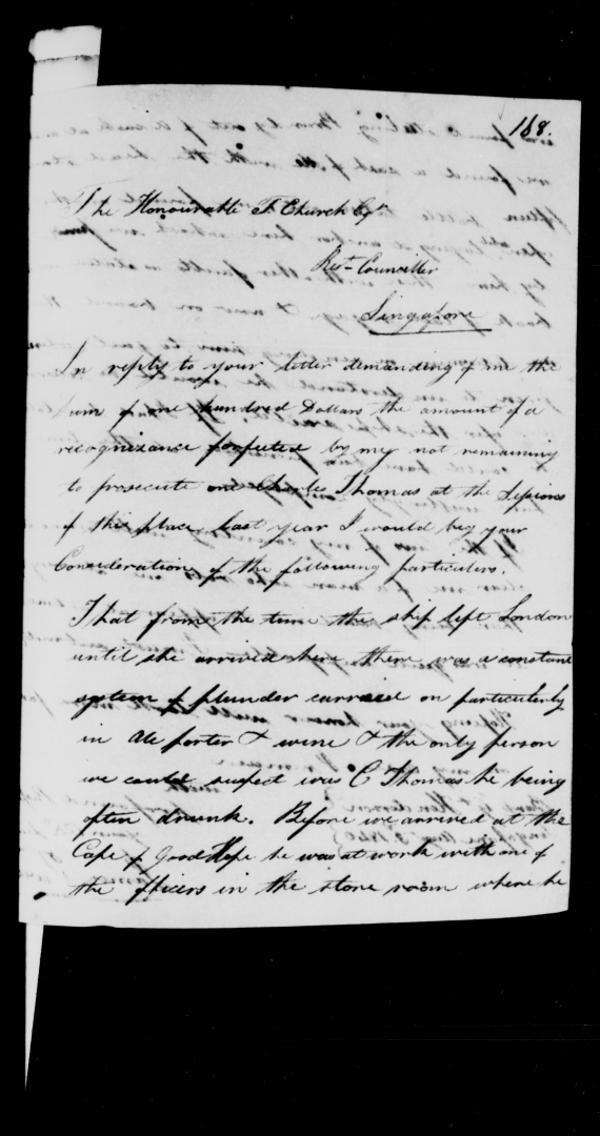 168.
The Honourable T. Church Esqr
Rest. Counciller
Singapore
In reply to your letter demanding of me the
sum of one hundred Dollars the amount of a
recognizance forfeited by my not remaining
to prosecute one Charles Thomas at the Sesions
of this place last year I would beg your
Consideration of the following particulers.
That from the time the ship left London
until she arrived here there was a constant
system of plunder carried on particulerly
in Ale porter & wine & the only person
we could suspect was C Thomas he being
often drunk. Before we arrived at the
Cape of Good Hope he was at work with one of
the officers in the store room where he